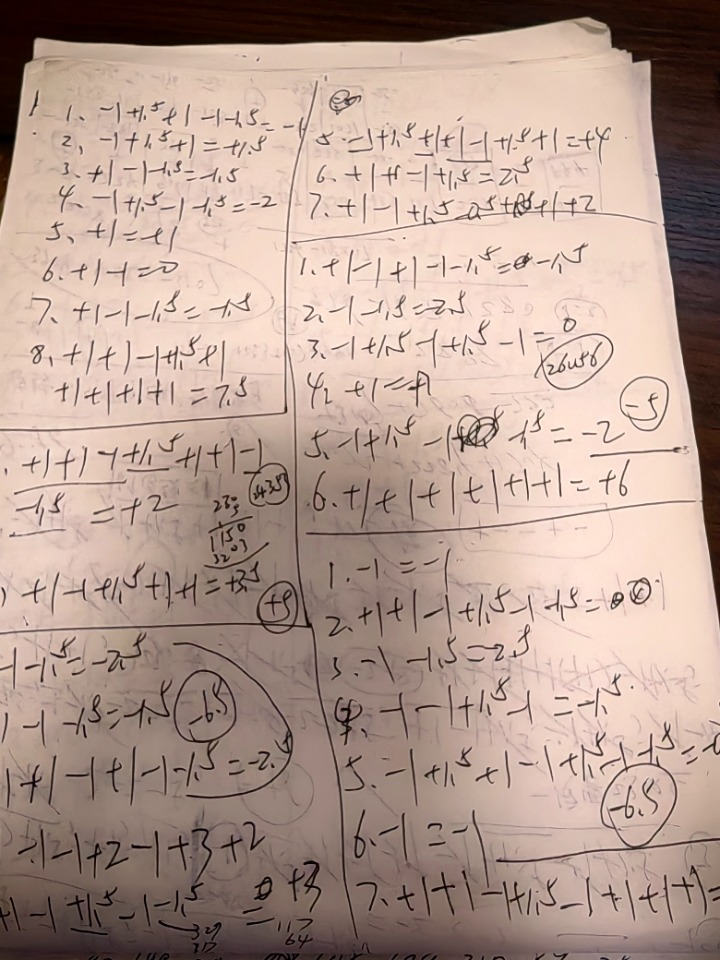 1. -1+1.5+1-1-1.5=-1
2. -1+1.5+1=+1.5
3. +1-1-1.5=-1.5
4. -1+1.5-1-1.5=-2
5. +1=+1
6. +1-1=0
7. +1-1-1.5=-1.5
8. +1+1-1+1.5+1
+1+1+1+1=7.5
+1+1-1+1.5+1+1-1
-1.5=+2
230
1150
3203
+1-1+1.5+1+1=+3.5
+5
-1-1.5=-2.5
1-1-1.5=-1.5
-6.5
1+1-1+1-1-1.5=-2.5
-1-1+2-1+3+2
+1-1+1.5-1-1.5=0+3
117
64
5. -1+1.5+1+1-1+1.5+1=+4
6. +1+1-1+1.5=2.5
7. +1-1+1.5
+1+2
1. +1-1+1-1-1.5=-1.5
2. -1-1.5=2.5
3. -1+1.5-1+1.5-1=0
4. +1=+1
-5
5. -1+1.5-1
-1.5=-2
6. +1+1+1+1+1+1=+6
1. -1=-1
2. +1+1-1+1.5-1-1.5=0
3. -1-1.5=-2.5
4. -1-1+1.5-1=-1.5
5. -1+1.5+1-1+1.5-1-1.5=
-6.5
6. -1=-1
7. +1+1-1+1.5-1+1+1+1=